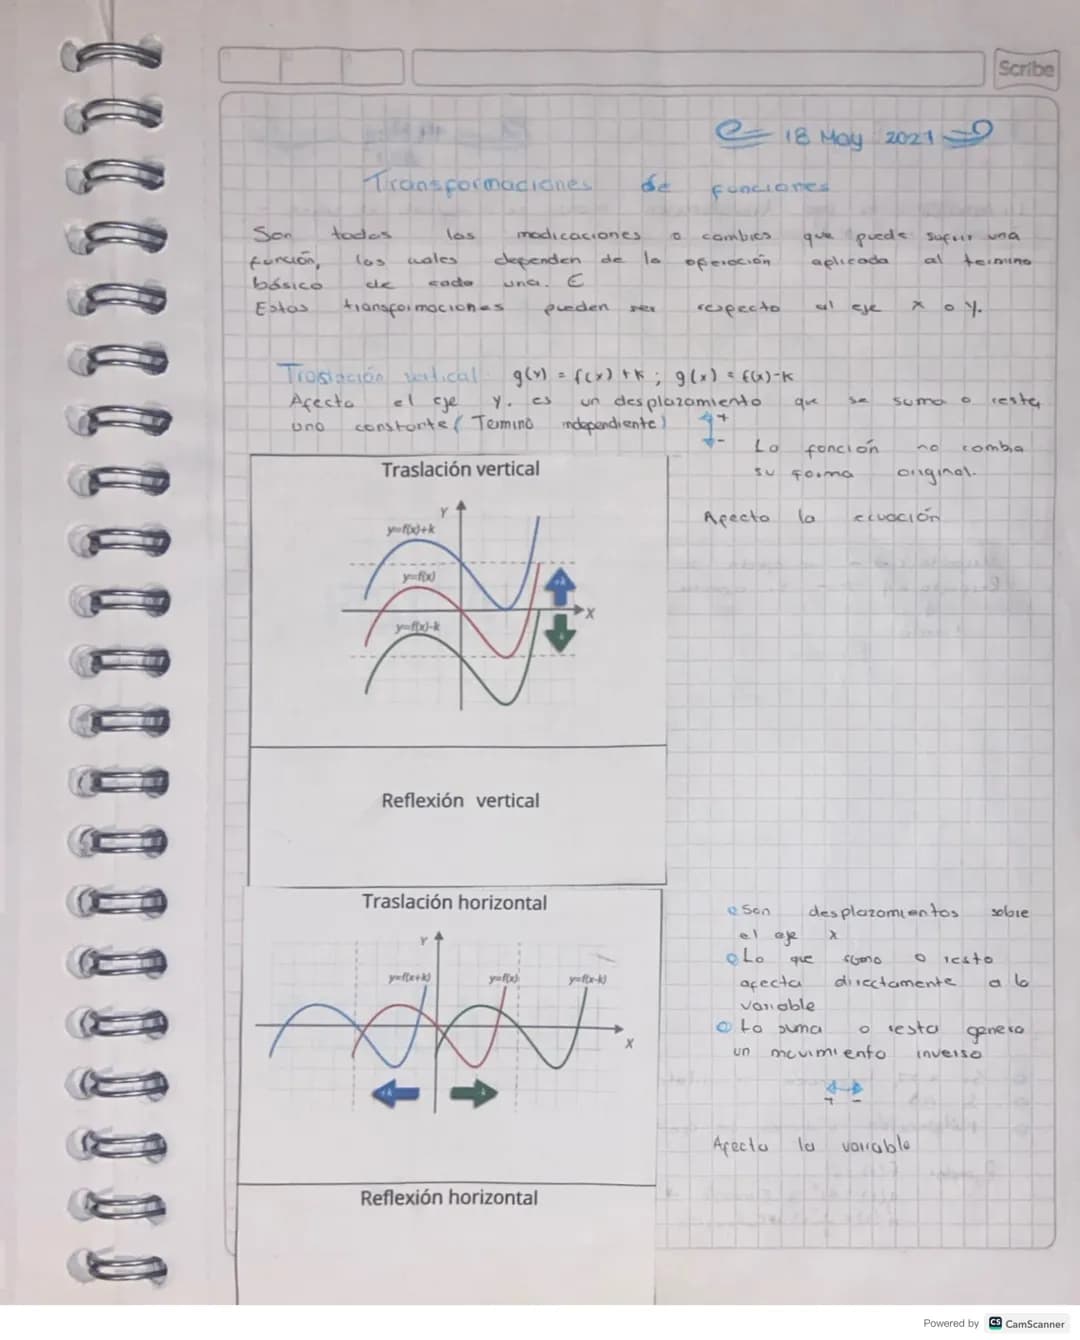 Scribe
18 May 2021
Transformaciones de funciones
Son todas las modicaciones o cambios que puede sufrir una
función, las cuales dependen de la operación aplicada al termino
básico de cada una. E
Estas transformaciones pueden ser respecto al eje x o y.
Traslación vertical g(x) = f(x) + k ; g(x) = f(x) - k
Afecta el eje y. es un desplazamiento que se suma o resta
una constante ( Termino independiente)
+
-
La función no cambia
su forma original.
Afecta la ecuación
Traslación vertical
Y
y=f(x)+k
y=f(x)
+k
X
y=f(x)-k
Reflexión vertical
Traslación horizontal
Y
y=f(x+k)
y=f(x)
y=f(x-k)
X
+k
Son desplazamientos sobre
el eje x
Lo que sumo o resto
afecta directamente a la
variable
La suma o resta genera
un movimiento inverso
+ -
Afecta la variable
Reflexión horizontal
Powered by CS CamScanner